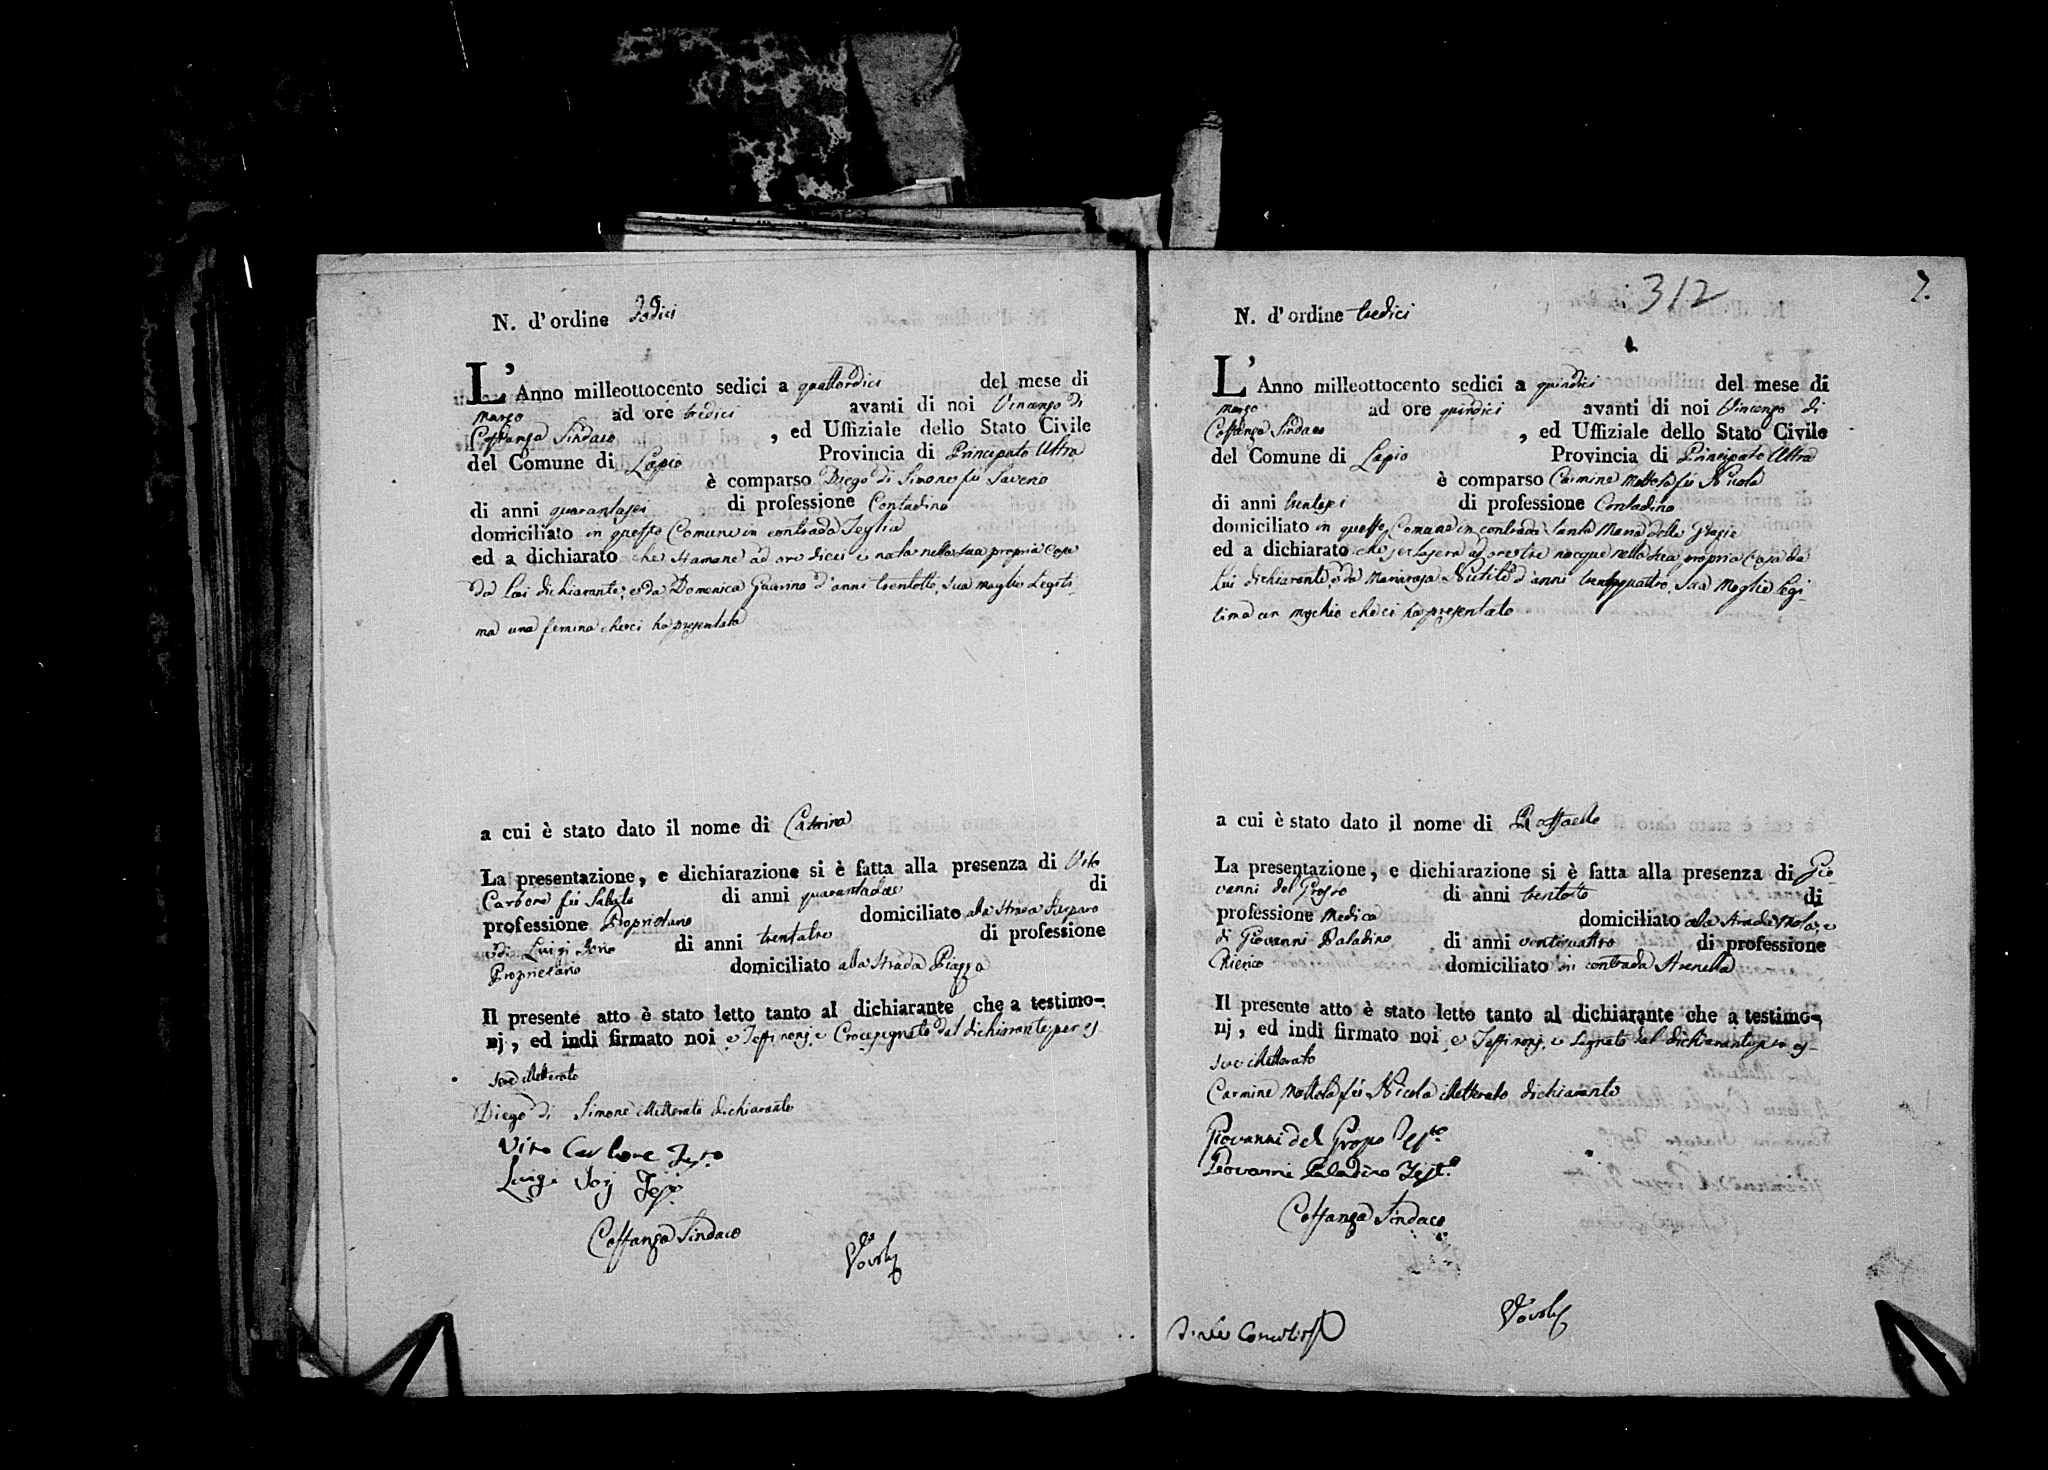 N. d'ordine dodici
L'Anno milleottocento sedici a quattordici del mese di
marzo ad ore tredici avanti di noi Vincenzo di
Costanza Sindaco , ed Uffiziale dello Stato Civile
del Comune di Lapio Provincia di Principato Ultra
è comparso Diego di Simone fù Saverio
di anni quarantasei di professione Contadino
domiciliato in questo Comune in contrada Teglia
ed a dichiarato che stamane ad ore dieci è nata nella sua propria casa
da Lui dichiarante, e da Domenica Guarino d'anni trentotto, sua moglie Legiti-
ma una femina che ci ha presentato
a cui è stato dato il nome di Catrina
La presentazione, e dichiarazione si è fatta alla presenza di Vito
Carbone fù Sabato di anni quarantadue di
professione Proprietario domiciliato alla strada
e di Luigi di anni trentatre di professione
Proprietario domiciliato alla strada Piazza
Il presente atto è stato letto tanto al dichiarante che a testimo-
nj, ed indi firmato noi e Testimonj, e Crocesegnato dal dichiarante per es
sere illetterato
Diego di Simone illetterato dichiarante
Vito Carbone Testo
Luigi Test.
Costanza Sindaco
312
7.
N. d'ordine tredici
L'Anno milleottocento sedici a quindici del mese di
marzo ad ore quindici avanti di noi Vincenzo di
Costanza Sindaco , ed Uffiziale dello Stato Civile
del Comune di Lapio Provincia di Principato Ultra
è comparso Carmine Mottola fù Nicola
di anni trentasei di professione Contadino
domiciliato in questo Comune in contrada Santa Maria delle Grazie
ed a dichiarato che jeri sera ad ore tre nacque nella sua propria Casa da
Lui dichiarante, e da Mariarosa d'anni trentaquattro, sua Moglie Legi-
tima un maschio che ci ha presentato
a cui è stato dato il nome di Raffaele
La presentazione, e dichiarazione si è fatta alla presenza di Gio-
vanni del Grosso di anni trentotto di
professione Medico domiciliato alla strada Mola, e
di Giovanni Paladino di anni ventiquattro di professione
Chierico domiciliato in contrada Arenella
Il presente atto è stato letto tanto al dichiarante che a testimo-
nj, ed indi firmato noi e Testimonj, e segnato dal dichiarante per es-
sere illetterato
Carmine Mottola fù Nicola illetterato dichiarante
Giovanni del Grosso Testo
Giovanni Paladino Test.o
Costanza Sindaco